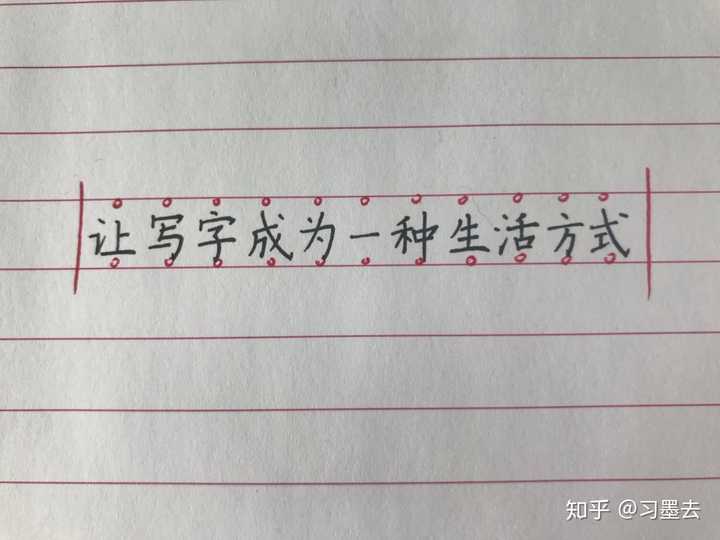 让写字成为一种生活方式
知乎 @习墨去